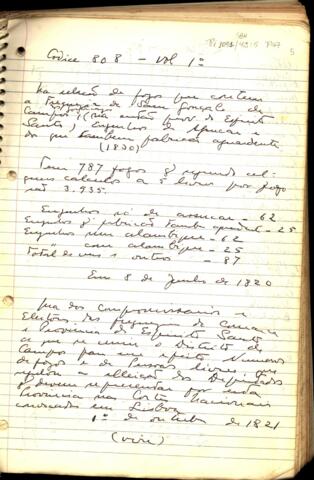 Códice 808 – Vol 1º
5
Na relação de fogos que contem
a Freguezia de São Gonçalo de
Campos (
Santo) Engenhos de Assucar e
do que tambem fabricão aguardente
(1820)
Tem 787 fogos q' segundo al-
guns calculos a 5 livres por fogo
são 3.935.
Engenhos só de assucar – 62
Engenhos q' fabricão tambem – 25
Engenhos sem alambique – 62
" com alambique – 25
Total de uns e outros – 87
Em 8 de Junho de 1820
dos compromissarios e
Eleitores das freguezias da Comarca
e Provincia do Espirito Santo
a que se reuniu o Districto de
Campos para esse efeito. Numeros
de fogos e de Pessoas livres, que
a eleição dos Deputados
q' devem representar por esta
Provincia nas Cortes Nacionais
convocadas em Lisboa
1º de outubro de 1821
(vire)